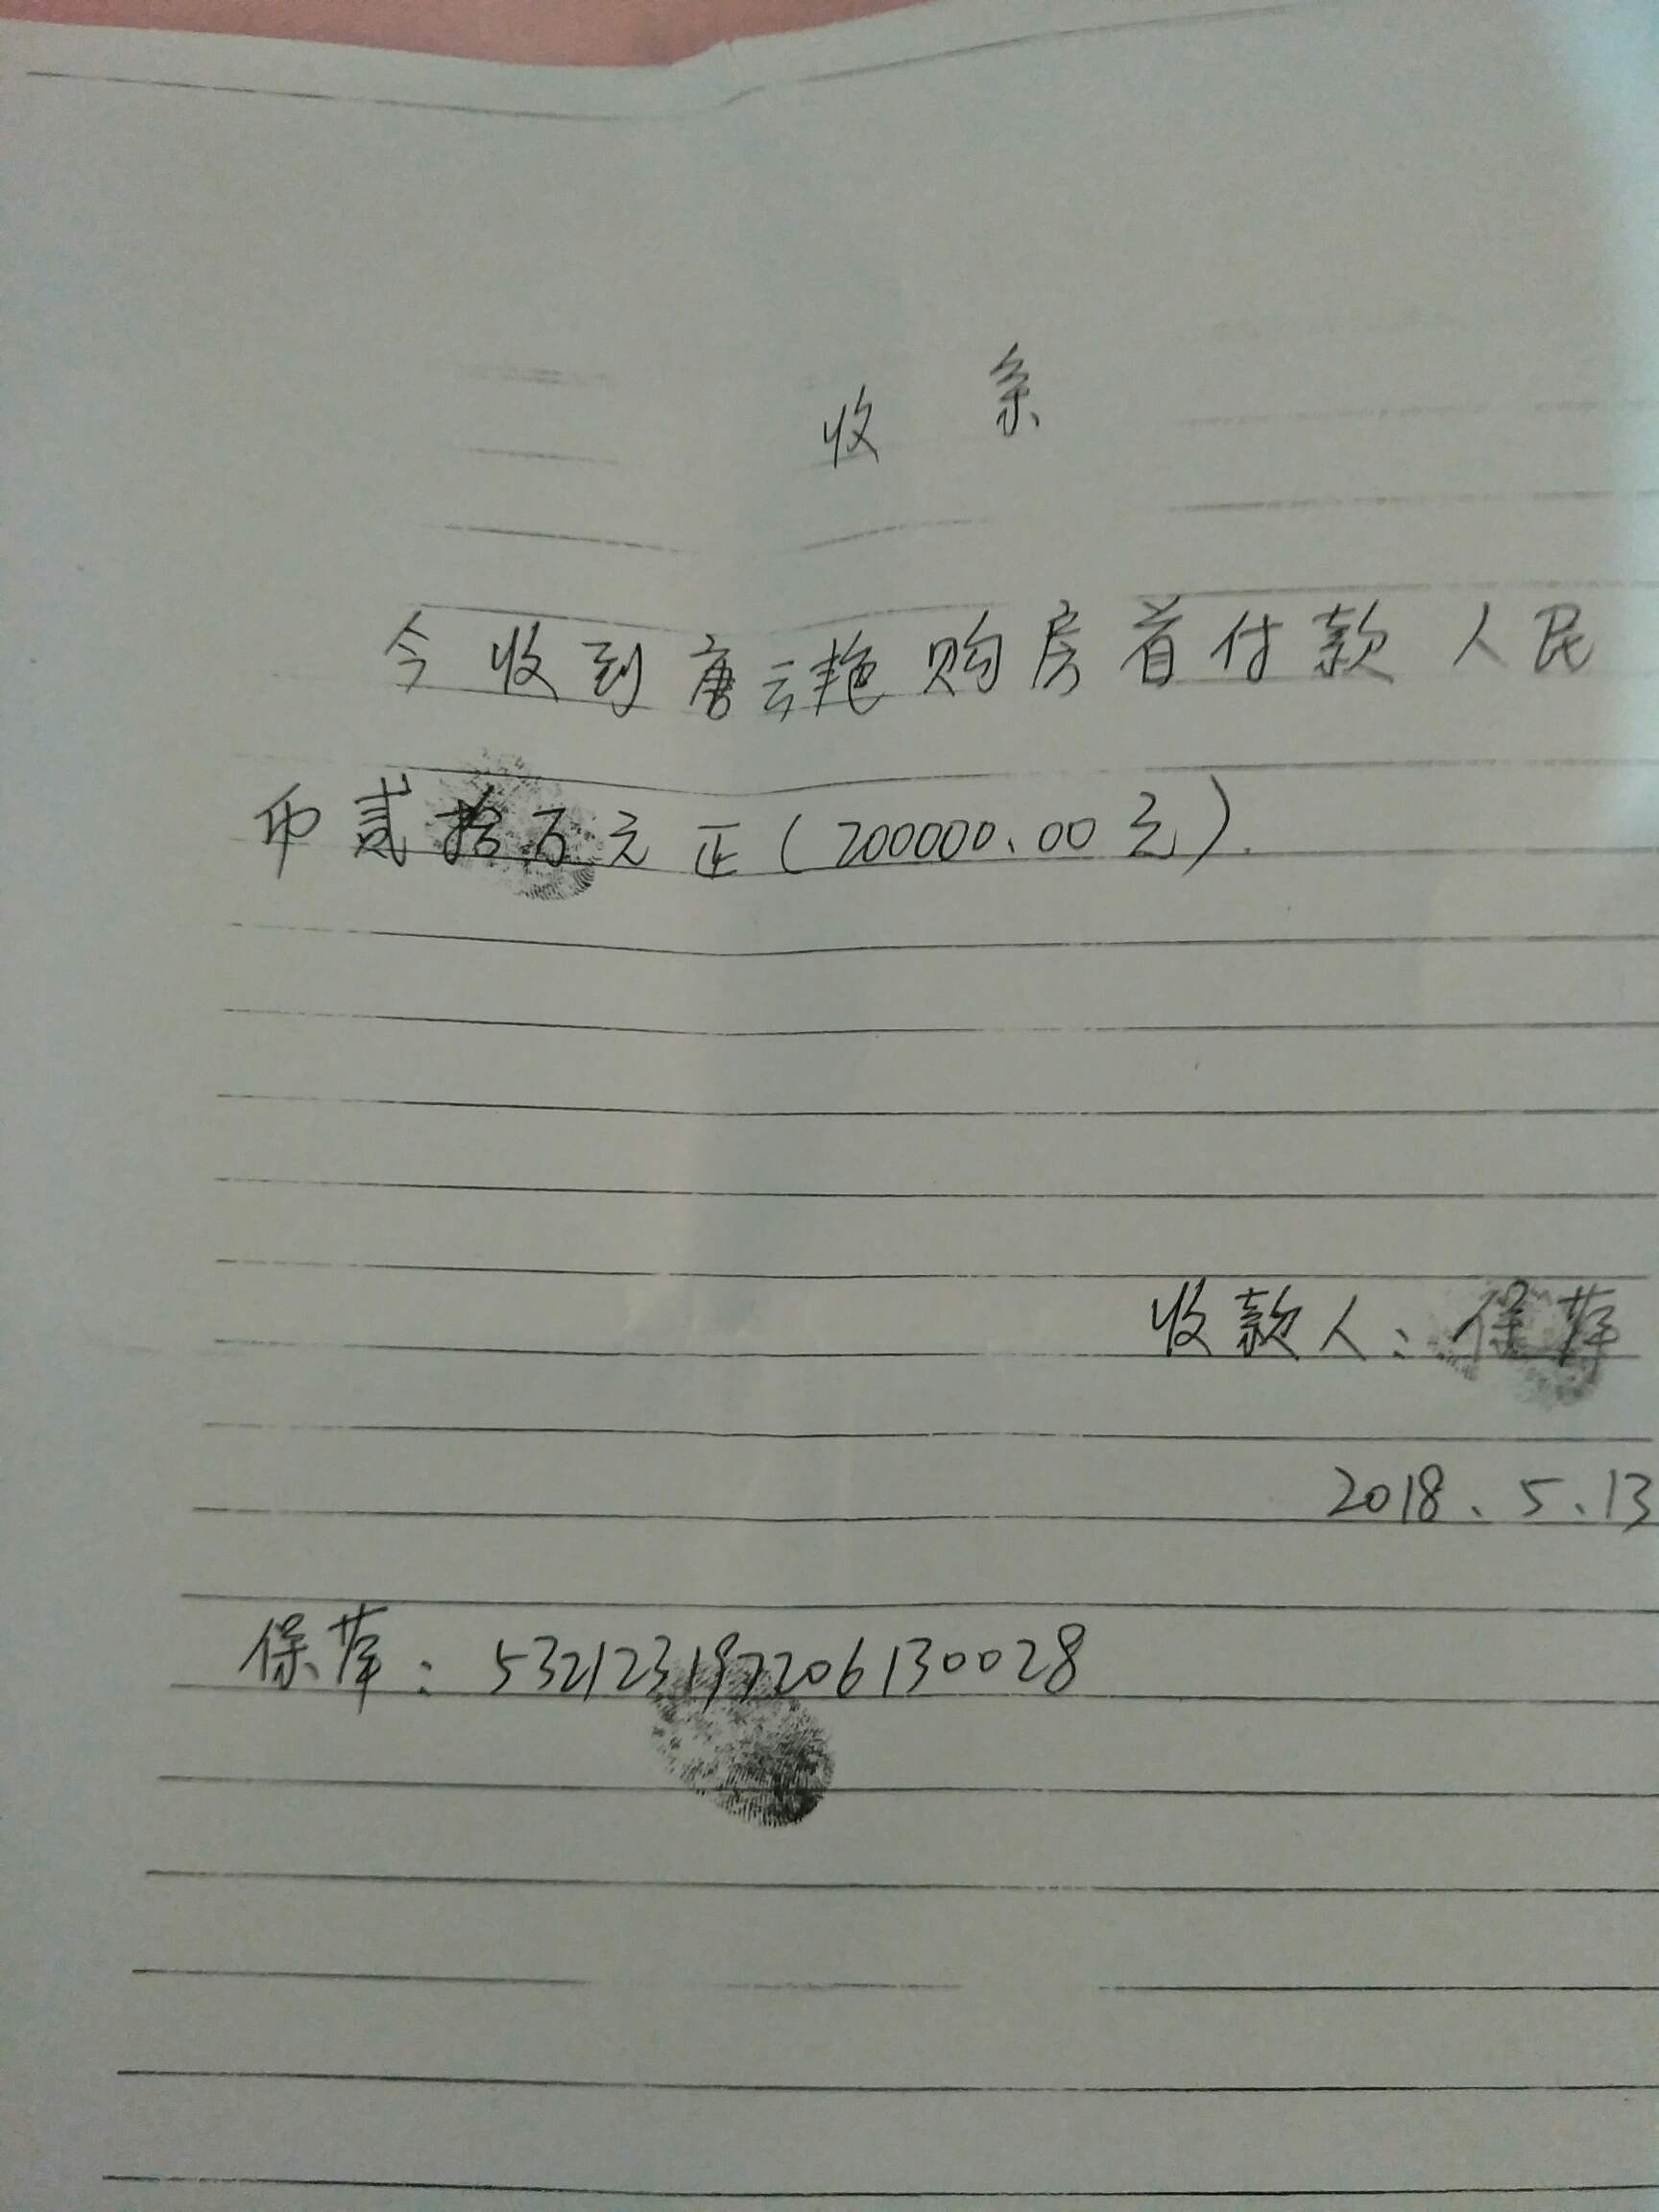 收 条
今收到唐云艳购房首付款人民
币贰拾万元正(200000.00元).
收款人:保苹
2018.5.13
保苹:532123197206130028